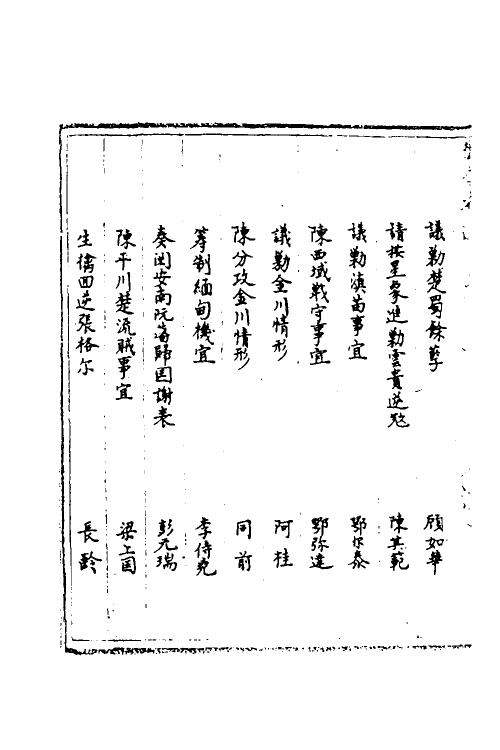 議勦楚蜀餘孽 顧如華
請按星象進勦雲貴逆 陳其範
議勦滇苗事宜 鄂尔泰
陳西域戰守事宜 鄂弥達
議勦金川情形 阿桂
陳分攻金川情形 同前
籌制緬甸機宜 李侍尭
奏開安南阮 歸國謝表 彭元瑞
陳平川楚流賊事宜 梁上国
生擒回逆張格尔 長齡